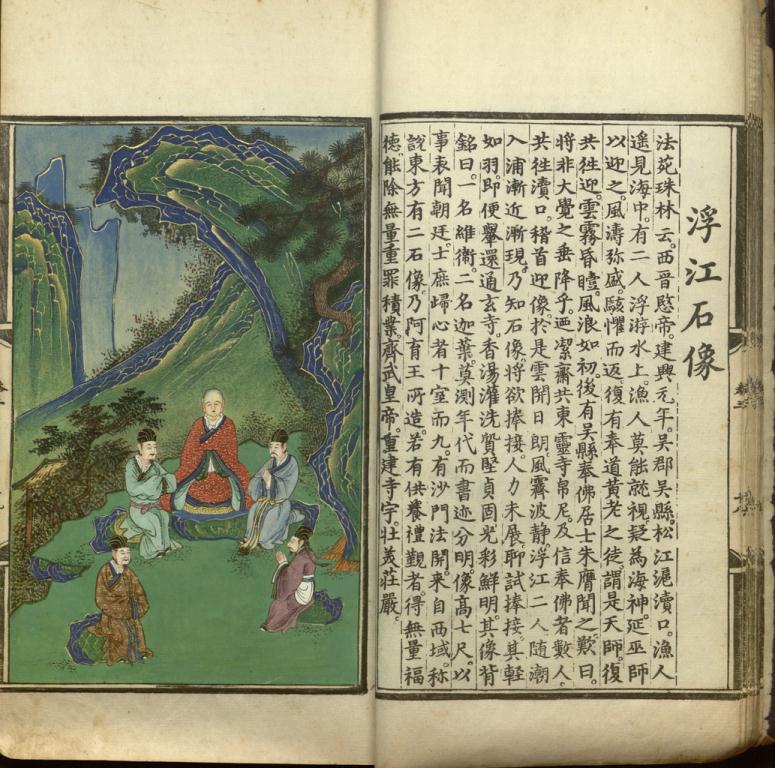 浮江石像
法苑珠林云。西晉愍帝。建興元年。吳郡吳縣。松江滬瀆口。漁人
遥見海中。有二人浮游水上。漁人莫能就視。疑為海神。延巫師
以迎之。風濤弥盛。駭懼而返。復有奉道黃老之徒。謂是天師。復
共往迎。雲霧昏曀。風浪如初。後有吳縣奉佛居士朱膺聞之。歎曰。
將非大覺之垂降乎。廼潔齋共東靈寺帛尼。及信奉佛者數人。
共徃瀆口。稽首迎像。於是雲開日朗。風霽波靜。浮江二人。随潮
入浦。漸近漸現。乃知石像。將欲捧接。人力未展。聊試捧接。其軽
如羽。即便舉還通玄寺。香湯灌洗。質堅貞固。光彩鮮明。其像背
銘曰。一名維衛。二名迦葉。莫測年代。而書迹分明。像高七尺。以
事表聞朝廷。士庶歸心者。十室而九。有沙門法開。来自西域。称
說東方有二石像。乃阿育王所造。若有供養禮覲者。得無量福
德。能除無量重罪積業。齊武皇帝。重建寺宇。壮美莊嚴。